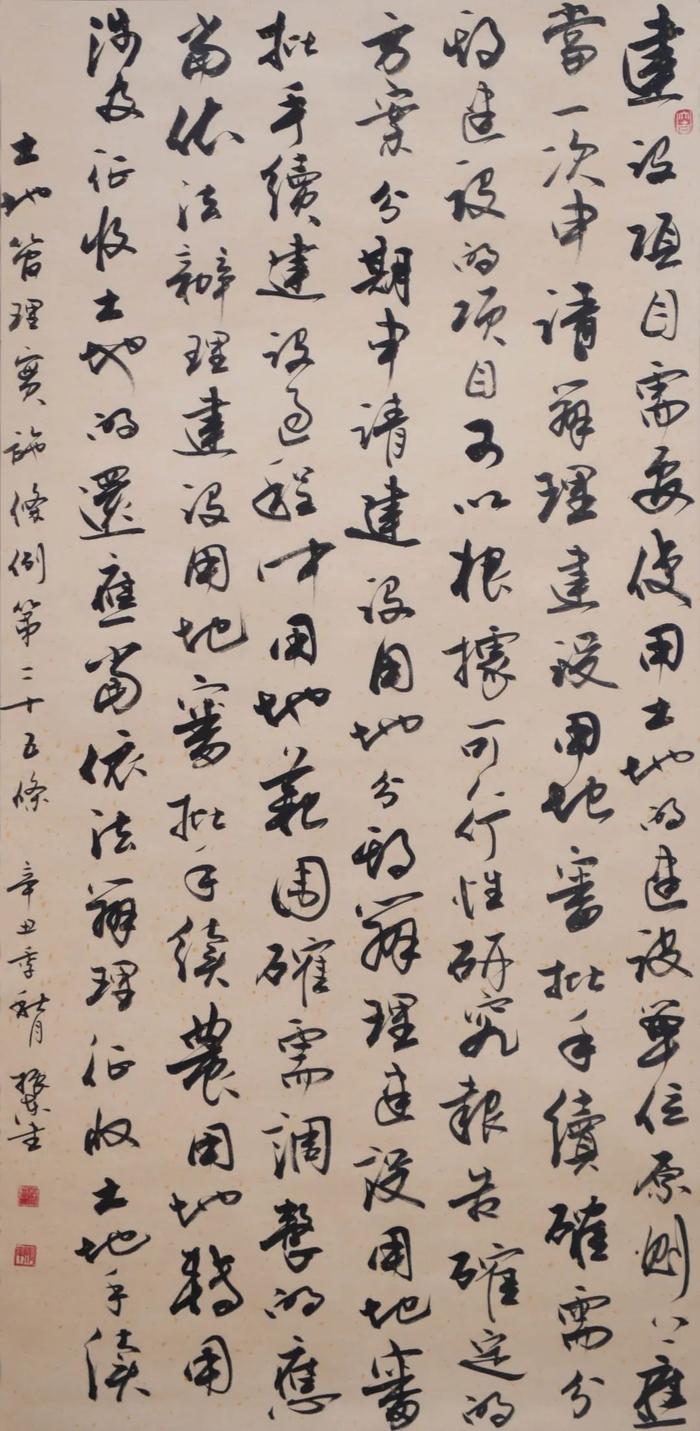 建設項目需要使用土地的建設單位原則上應
當一次申請辦理建設用地審批手續確需分
期建設的項目可以根據可行性研究報告確定的
方案分期申請建設用地分期辦理建設用地審
批手續建設過程中用地範圍確需調整的應
當依法辦理建設用地審批手續農用地轉用
涉及征收土地的還應當依法辦理征收土地手續
土地管理實施條例第二十五條 辛丑季秋月